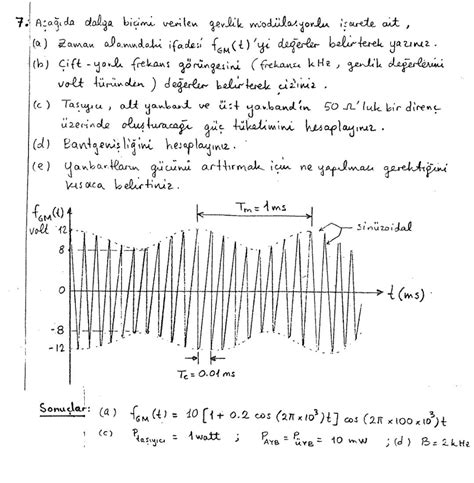 7. Aşağıda dalga biçimi verilen genlik modülasyonlu işarete ait,
(a) Zaman alanındaki ifadesi f_GM(t)'yi değerler belirterek yazınız.
(b) Çift-yanlı frekans görüngesini (frekansı kHz, genlik değerlerini
volt türünden) değerler belirterek çiziniz.
(c) Taşıyıcı, alt yanband ve üst yanband'ın 50 Ω'luk bir direnç
üzerinde oluşturacağı güç tüketimini hesaplayınız.
(d) Bantgenişliğini hesaplayınız.
(e) Yanbantların gücünü arttırmak için ne yapılması gerektiğini
kısaca belirtiniz.
f_GM(t)
volt
T_m = 1 ms
sinüzoidal
12
8
0
t (ms)
-8
-12
T_c = 0.01 ms
Sonuçlar: (a) f_GM(t) = 10 [1 + 0.2 cos (2π × 10³) t] cos (2π × 100 × 10³) t
(c) P_taşıyıcı = 1 watt ; P_AYB = P_ÜYB = 10 mW ; (d) B = 2 kHz